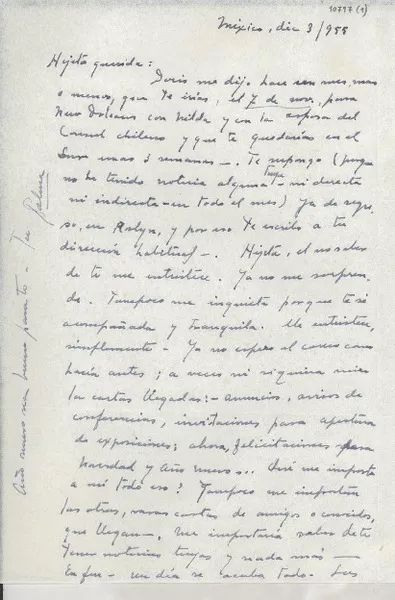 10797 (1)
México, dic 3/955
Hijita querida:
Doris me dijo hace un mes, mas
o menos, que te irías, el 7 de nov., para
New Orleans con Hilda y con la esposa del
Consul chileno y que te quedarías en el
Sur unas 3 semanas -. Te supongo (porque
no he tenido noticia alguna tuya - ni directa
ni indirecta - en todo el mes) ya de regre-
so, en Roslyn, y por eso te escribo a tu
dirección habitual -. Hijita, el no saber
de ti me entristece. Ya no me sorpren-
de. Tampoco me inquieta porque te sé
acompañada y tranquila. Me entristece,
simplemente - Ya no espero el correo como
hacía antes; a veces ni siquiera miro
las cartas llegadas: - anuncios, avisos de
conferencias, invitaciones para apertura
de exposiciones; ahora, felicitaciones para
Navidad y Año nuevo... Qué me importa
a mi todo eso? Tampoco me importan
las otras, raras cartas de amigos o conocidos,
que llegan -. Me importaría saber de ti
tener noticias tuyas y nada más -
En fin - un día se acaba todo - Las
Año nuevo muy bueno para ti - Tu Palma